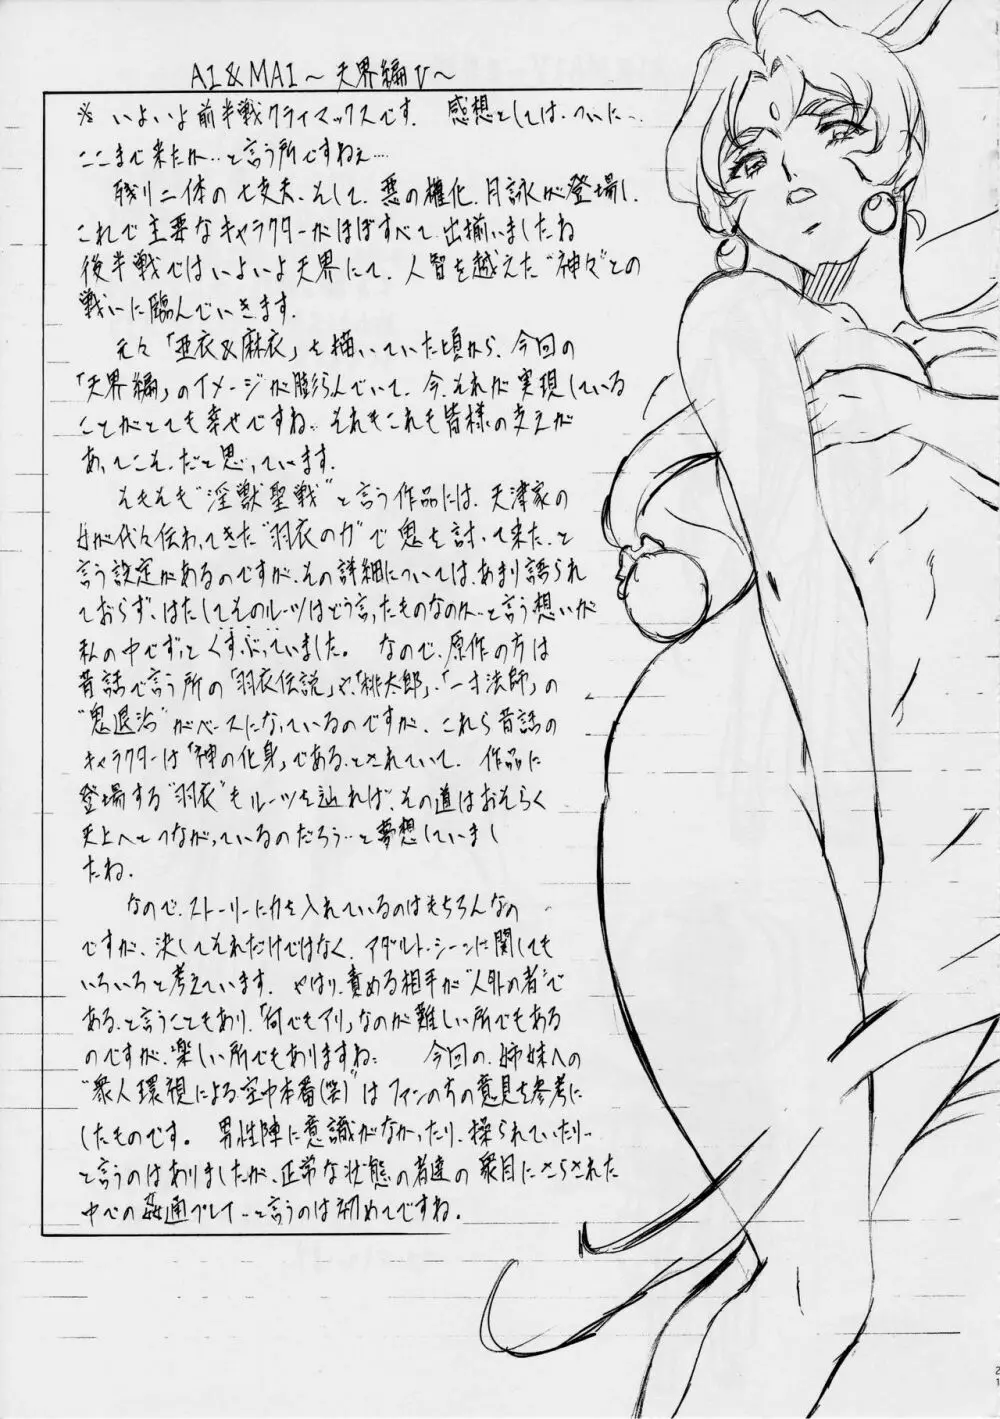 AI&MAI～天界編Ⅴ～
※ いよいよ前半戦クライマックスです。 感想としては、ついに…
ここまで来たか…と言う所ですねぇ…
残り二体の七丈夫、そして、悪の権化、月詠が登場し、
これで主要なキャラクターがほぼすべて、出揃いましたね
後半戦ではいよいよ天界にて、人智を越えた“神々”との
戦いに臨んでいきます。
元々「亜衣&麻衣」を描いていた頃から、今回の
「天界編」のイメージが膨らんでいて、今、それが実現している
ことがとても幸せですね… それもこれも皆様の支えが
あってこそ、だと思っています。
そもそも“淫獣聖戦”と言う作品には、天津家の
女が代々伝わってきた“羽衣の力”で鬼を討って来た、と
言う設定があるのですが、その詳細については、あまり語られ
ておらず、はたしてそのルーツはどう言ったものなのか…と言う想いが
私の中でずっとくすぶっていました。 なので、原作の方は
昔話で言う所の「羽衣伝説」や、「桃太郎」、「一寸法師」の
“鬼退治”がベースになっているのですが、これら昔話の
キャラクターは「神の化身」である、とされていて、作品に
登場する“羽衣”もルーツを辿れば、その道はおそらく
天上へとつながっているのだろう…と夢想していまし
たね。
なので、ストーリーに力を入れているのはもちろんなの
ですが、決してそれだけではなく、アダルト・シーンに関しても
いろいろと考えています。 やはり、責める相手が“人外の者”で
ある、と言うこともあり、「何でもアリ」なのが難しい所でもある
のですが、楽しい所でもありますね… 今回の、姉妹への
“衆人環視による空中本番(笑)”はファンの方の意見を参考に
したものです。 男性陣に意識がなかったり、操られていたり…
と言うのはありましたが、正常な状態の者達の衆目にさらされた
中での姦通プレイ…と言うのは初めてですね。
21